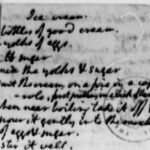 Ice cream.
bottles of good cream.
yolks of eggs.
& sugar
mix the yolks & sugar
the cream on a fire in a
when near boiling take it off &
pour it gently into the
of eggs & sugar.
stir it well.